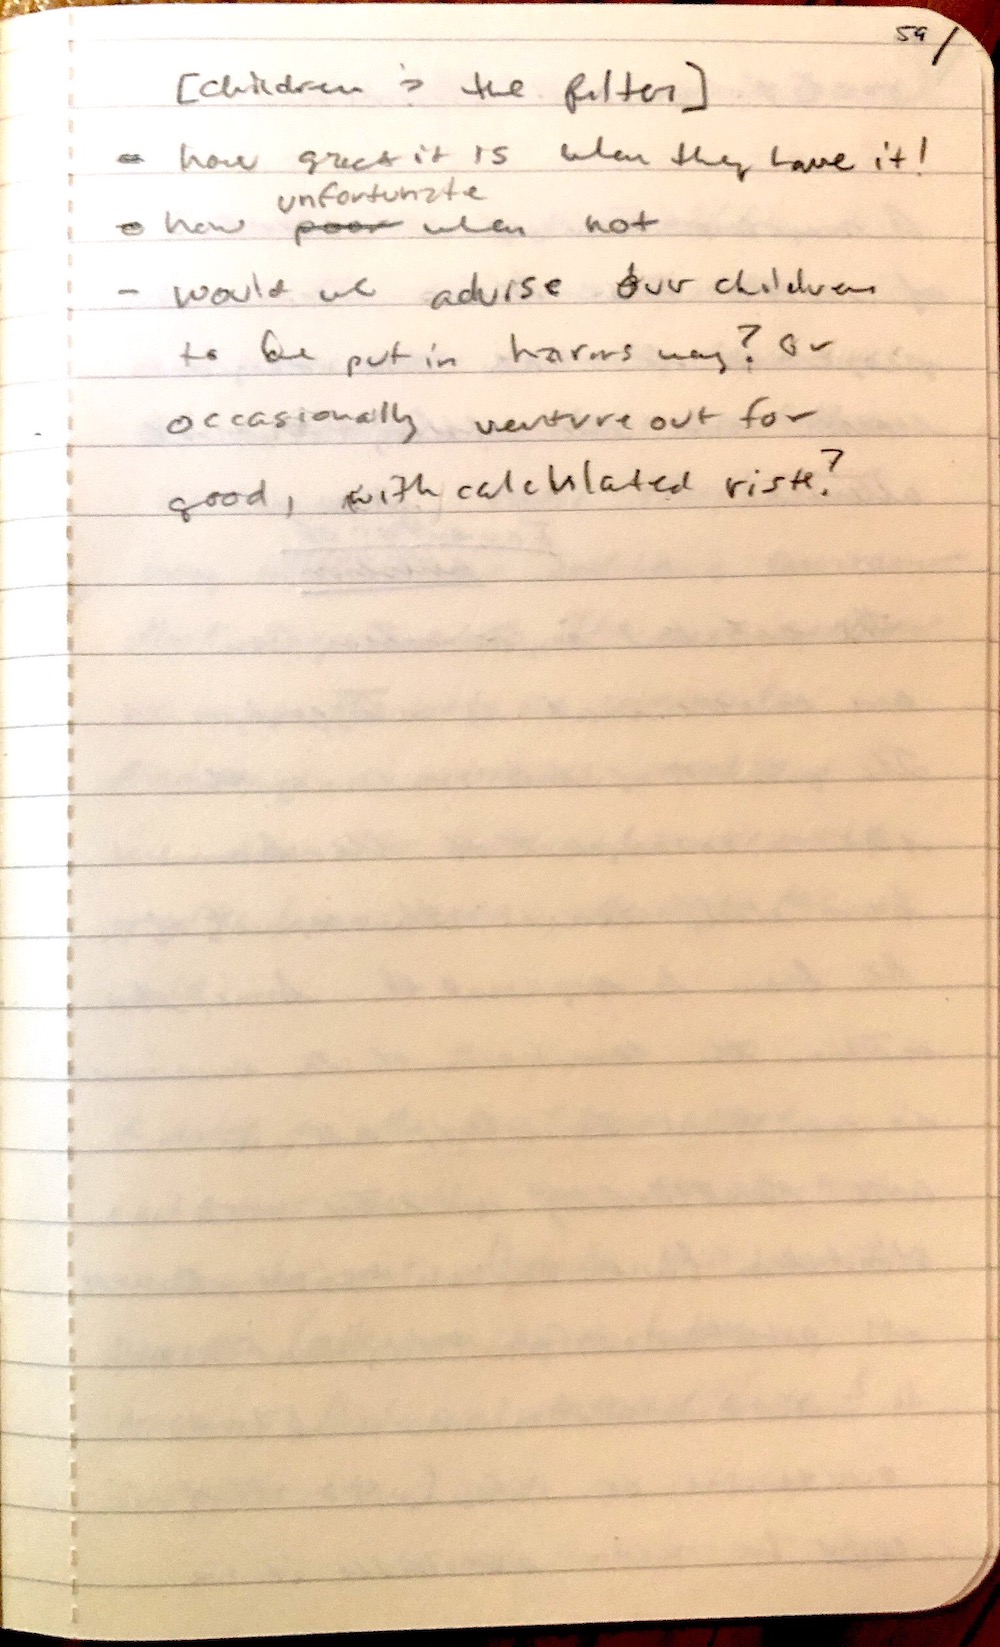 59/
[children is the filter]
- how great it is when they have it!
unfortunate
- how poor when not
- would we advise our children
to be put in harms way? Or
occasionally venture out for
good, with calculated risk?